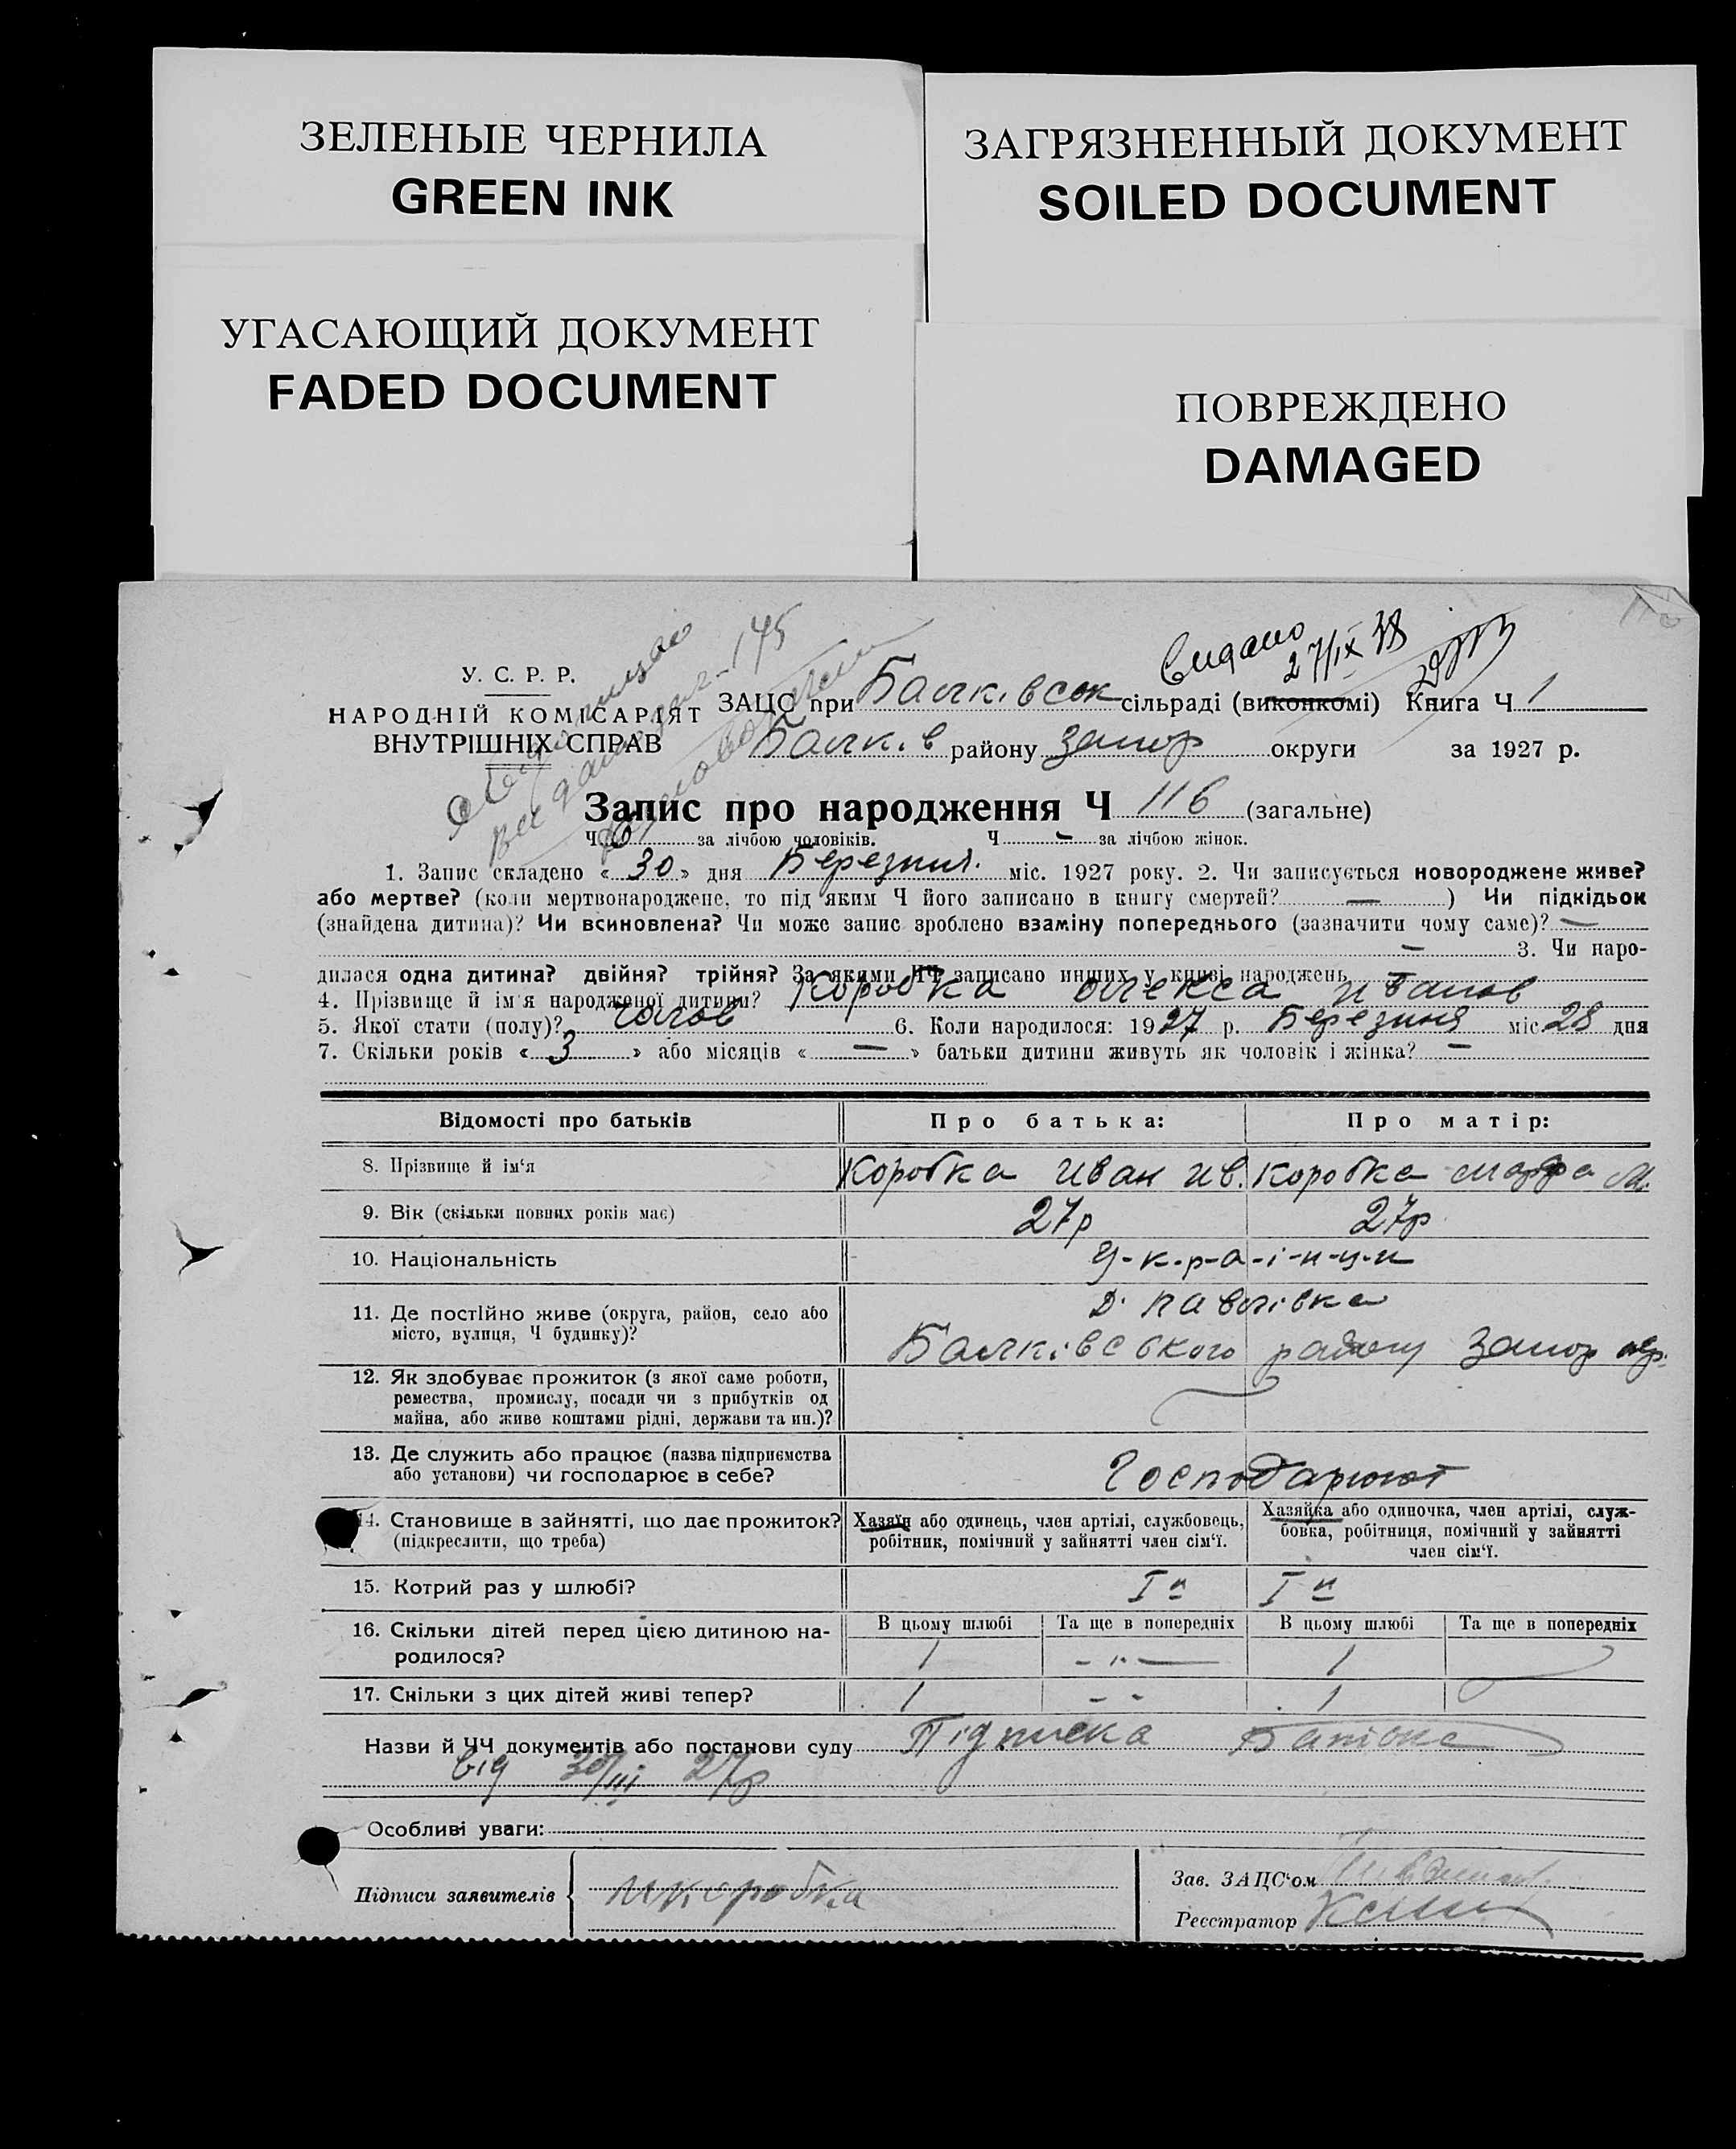 ЗЕЛЕНЫЕ ЧЕРНИЛА
GREEN INK
ЗАГРЯЗНЕННЫЙ ДОКУМЕНТ
SOILED DOCUMENT
УГАСАЮЩИЙ ДОКУМЕНТ
FADED DOCUMENT
ПОВРЕЖДЕНО
DAMAGED
Видано
27/IX 38
145
У. С. Р. Р.
НАРОДНІЙ КОМІСАРІЯТ
ВНУТРІШНІХ СПРАВ
ЗАЦС при Балківськ сільраді (виконкомі) Книга Ч 1
Балків району Запор округи за 1927 р.
Запис про народження Ч 116 (загальне)
Ч за лічбою чоловіків. Ч — за лічбою жінок.
1. Запис складено « 30 » дня Березня міс. 1927 року. 2. Чи записується новороджене живе?
або мертве? (коли мертвонароджене, то під яким Ч його записано в книгу смертей? — ) Чи підкідьок
(знайдена дитина)? Чи всиновлена? Чи може запис зроблено взаміну попереднього (зазначити чому саме)? —
— 3. Чи наро-
дилася одна дитина? двійня? трійня? За якими ЧЧ записано инших у книзі народжень —
4. Прізвище й ім'я народженої дитини? Коробка Олекса Иванов
5. Якої стати (полу)? чолов 6. Коли народилося: 1927 р. Березння міс. 28 дня
7. Скільки років « 3 » або місяців « — » батьки дитини живуть як чоловік і жінка? —
Відомості про батьків Про батька: Про матір:
8. Прізвище й ім'я Коробка Иван Ив. Коробка М.
9. Вік (скільки повних років має) 27р 27р
10. Національність У-к-р-а-ї-н-ц-и
11. Де постійно живе (округа, район, село або місто, вулиця, Ч будинку)? Д. Павлівка
Балківського району Запор окр.
12. Як здобуває прожиток (з якої саме роботи,
ремества, промислу, посади чи з прибутків од
майна, або живе коштами рідні, держави та ин.)?
13. Де служить або працює (назва підприємства
або установи) чи господарює в себе? Господарюют
14. Становище в зайнятті, що дає прожиток?
(підкреслити, що треба)
Хазяїн або одинець, член артілі, службовець,
робітник, помічний у зайнятті член сім'ї.
Хазяйка або одиночка, член артілі, служ-
бовка, робітниця, помічний у зайнятті
член сім'ї.
15. Котрий раз у шлюбі? I й I й
16. Скільки дітей перед цією дитиною на-
родилося?
В цьому шлюбі Та ще в попередніх В цьому шлюбі Та ще в попередніх
1 - " - 1
17. Скільки з цих дітей живі тепер? 1 - - 1
Назви й ЧЧ документів або постанови суду Підписка
Від 30/III 27р
Особливі уваги:
Підписи заявителів Икоробка
Зав. ЗАЦС'ом
Реєстратор